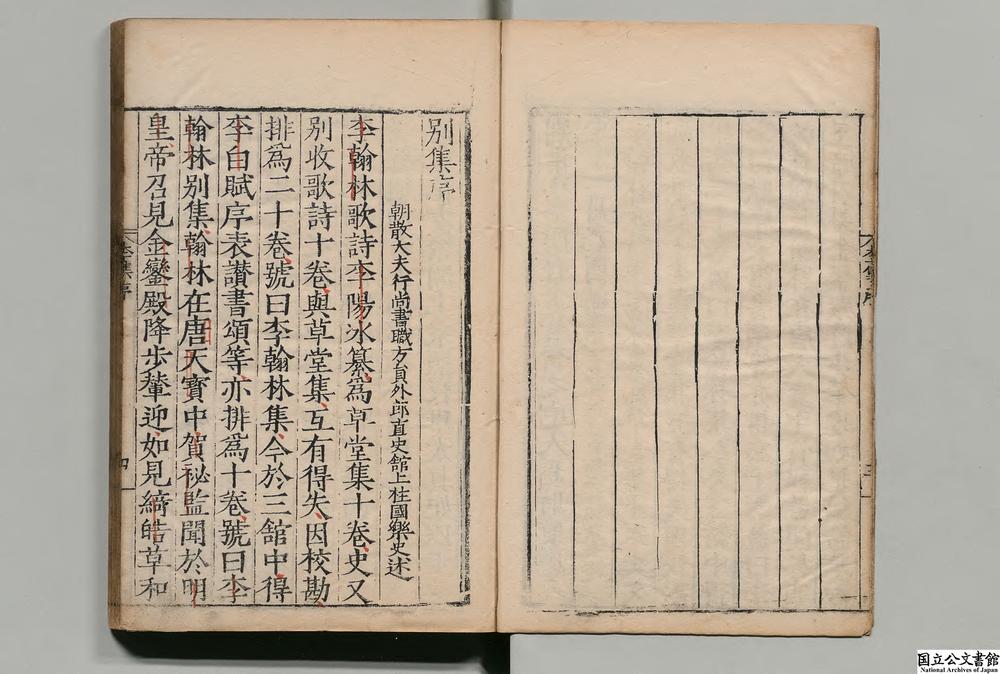 別集序
朝散大夫行尚書職方員外郎直史館上柱國樂史述
李翰林歌詩李陽冰纂爲草堂集十卷史又
別收歌詩十卷與草堂集互有得失因校勘
排爲二十卷號曰李翰林集今於三館中得
李白賦序表讃書頌等亦排爲十卷號曰李
翰林別集翰林在唐天寶中賀秘監聞於明
皇帝召見金鑾殿降步輦迎如見綺皓草和
李集序
四
国立公文書館
National Archives of Japan